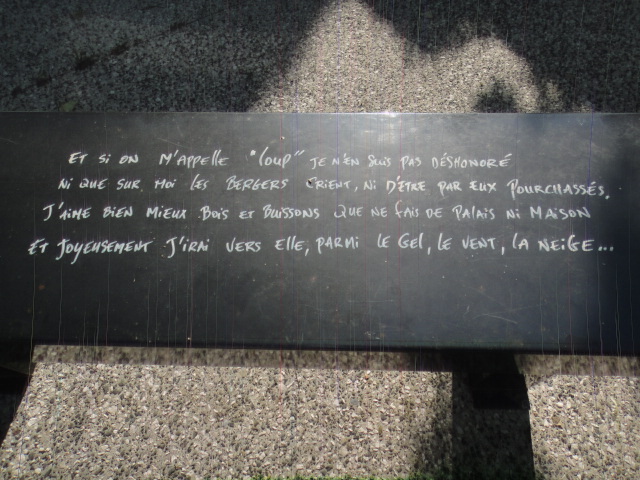 ET SI ON M'APPELLE "LOUP" JE N'EN SUIS PAS DÉSHONORÉ
NI QUE SUR MOI LES BERGERS CRIENT, NI D'ÊTRE PAR EUX POURCHASSÉS.
J'AIME BIEN MIEUX BOIS ET BUISSONS QUE NE FAIS DE PALAIS NI MAISON
ET JOYEUSEMENT J'IRAI VERS ELLE, PARMI LE GEL, LE VENT, LA NEIGE...